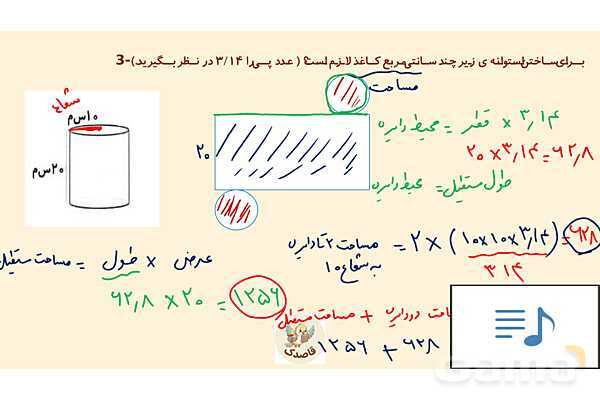 3- برای ساختن استوانه ی زیر چند سانتی‌مربع کاغذ لازم است؟ ( عدد پی را ۳/۱۴ در نظر بگیرید)
مساحت
شعاع
۱۰س‌م
۲۰س‌م
۲۰
محیط دایره = قطر × ۳٫۱۴
۲۰ × ۳٫۱۴ = ۶۲٫۸
طول مستطیل = محیط دایره
مساحت ۲ تا دایره به شعاع ۱۰ = ۲ × (۱۰×۱۰×۳٫۱۴) = ۶۲۸
۳۱۴
مساحت مستطیل = طول × عرض
۶۲٫۸ × ۲۰ = ۱۲۵۶
مساحت دو دایره + مساحت مستطیل
۱۲۵۶ + ۶۲۸
قاصدک
gama